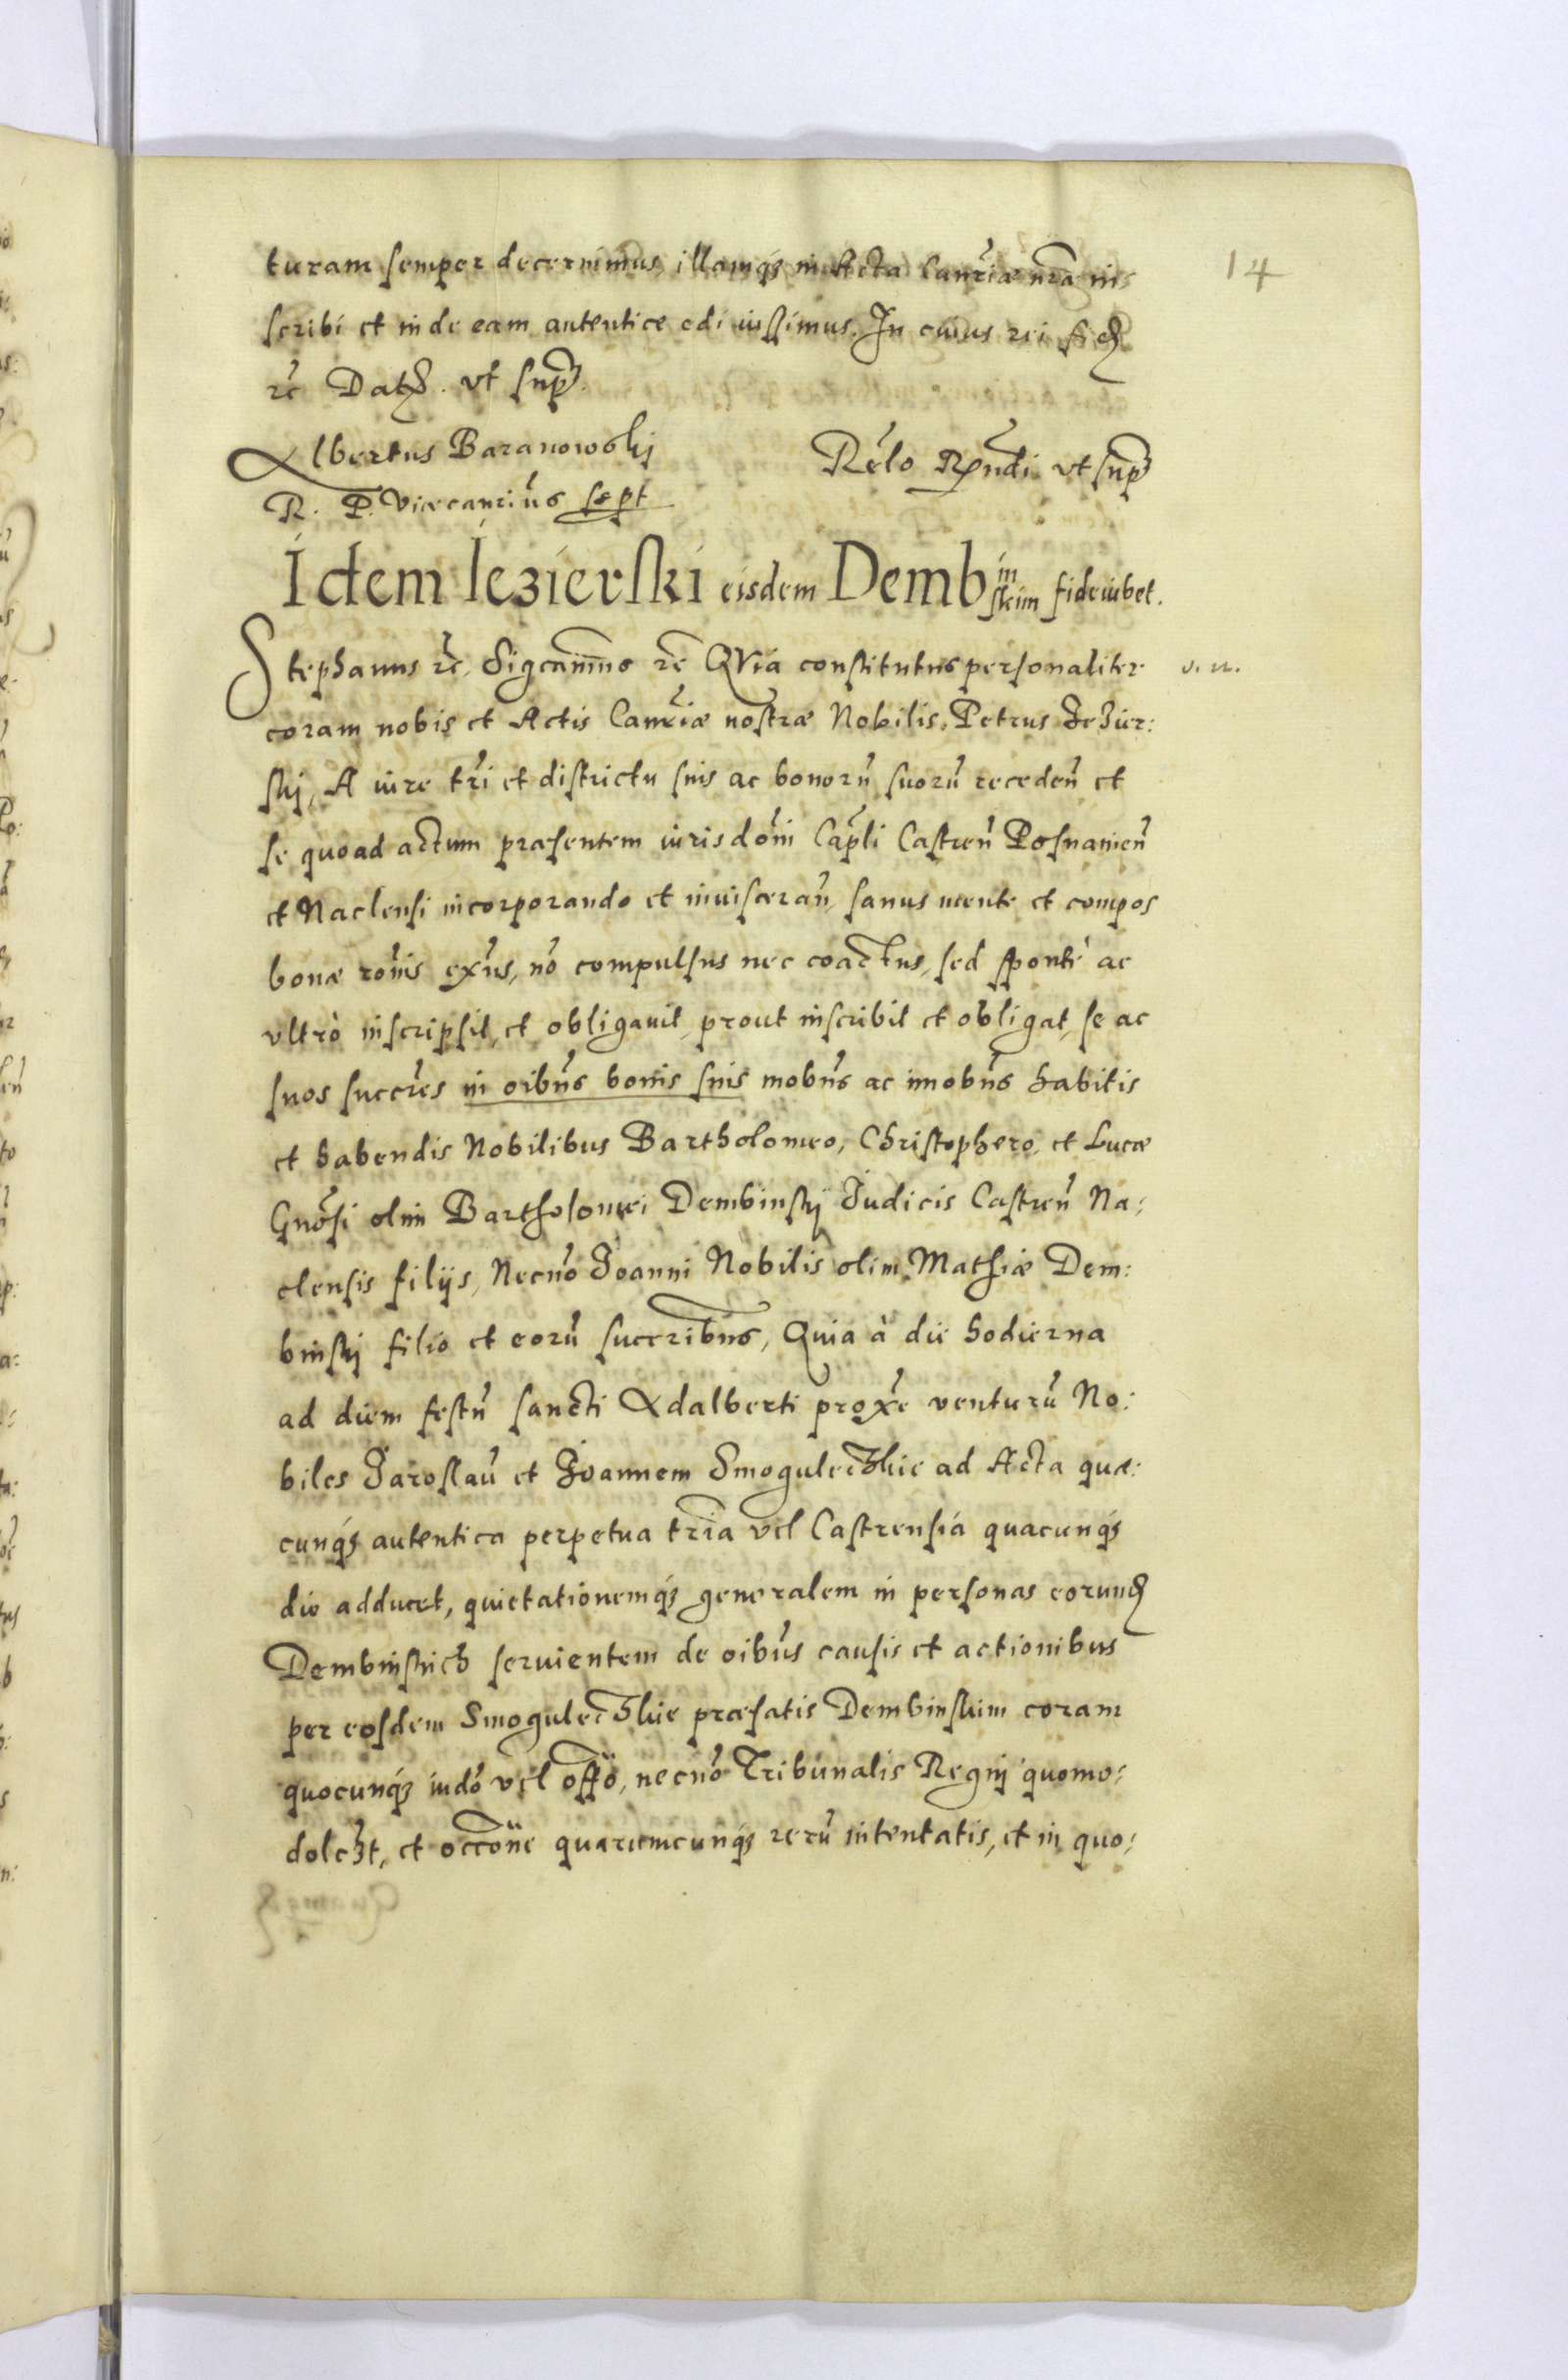 14
turam semper decernimus, illamq́ȝ in Acta Canr̃iæ nr̃a in:
scribi et inde eam autentice edi iussimus. In cuius rei fidȝ
rc̃ Datȝ. vt supȝ.
Albertus Baranowskj
R. P. Vicecanriũs sspt
Rélo Rṽndi vt supȝ
Idem Iezierski eisdem Dembinskim fideiubet.
Stephanus rc̃, Sigcam̃us rc̃ QVia constitutus personaliter
v. n.
coram nobis et Actis Canr̃iæ nostræ Nobilis Petrus Jezier:
skj, A iure tr̃i et districtu suis ac bonorũ suorũ recedeñ et
se quoad actum præsentem iurisdõni Cap̃li Castreñ Posnanieñ
et Naclensi incorporando et inuisceran̄, sanus mente et compos
bonæ rõnis ex̃ns, nõ compulsus nec coactus, sed spontè ac
vltrò inscripsit, et obligauit, prout inscribit et obligat, se ac
suos succr̃es in oibũs bonis suis mobũs ac im̃obũs habitis
et habendis Nobilibus Bartholomeo, Christophero, et Lucæ
Gnõsi olim Bartholomei Dembinskj Judicis Castreñ Na:
clensis filijs, Necnõ Joanni Nobilis olim Mathiæ Dem:
binskj filio et eorũ succribũs, Quia à die hodierna
ad diem festũ sancti Adalberti prox̃e venturũ No:
biles Jaroslaũ et Joannem Smogulec̃zkie ad Acta quæ:
cunq́ȝ autentica perpetua tr̃ia vel Castrensia quacunq́ȝ
die adducet, quietationemq́ȝ generalem in personas eorundȝ
Dembinskich seruientem de oibũs causis et actionibus
per eosdem Smogulec̃zkie præfatis Dembinskim coram
quocunq́ȝ iudõ vel off̃o, necnõ Tribunalis Regnj quomo:
dolc̃zt, et occõne quarumcunq́ȝ rerũ intentatis, et in quo: